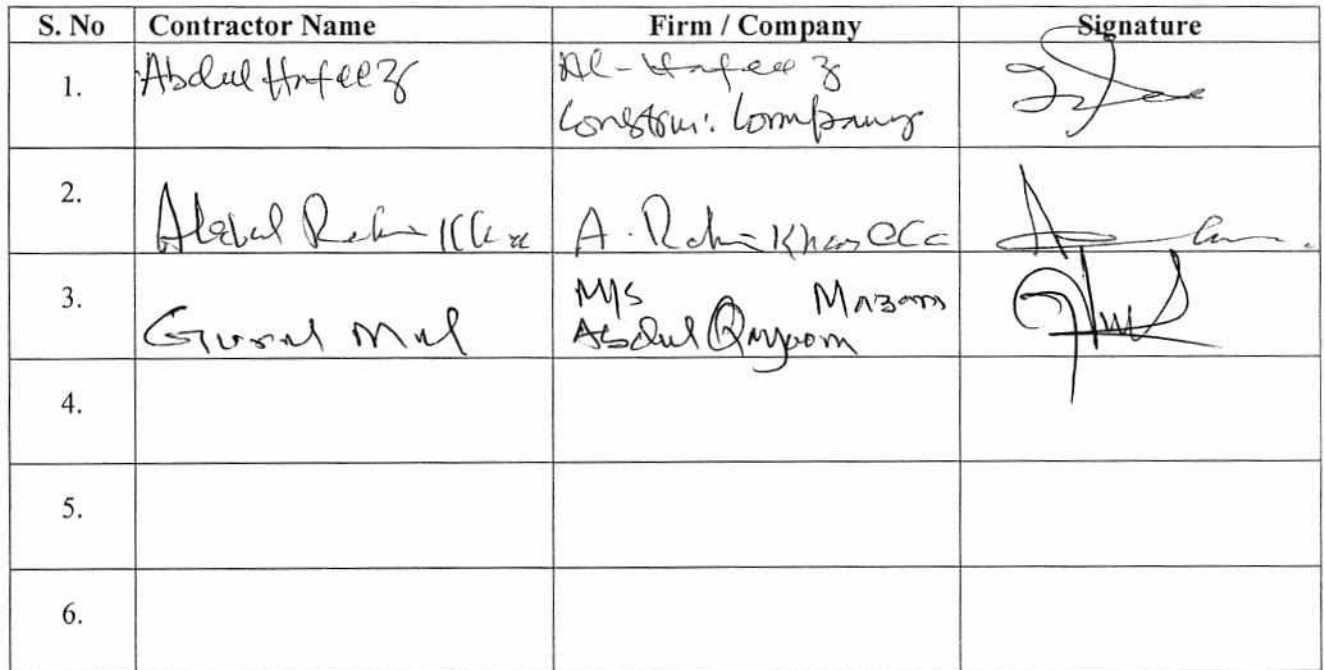 S. No Contractor Name Firm / Company Signature
1. Abdul Hafeez Al-Hafeez
Constru: Company
2. Abdul Rahim Khan A. Rahim Khan
3. M/S
Abdul Qayoom
4.
5.
6.